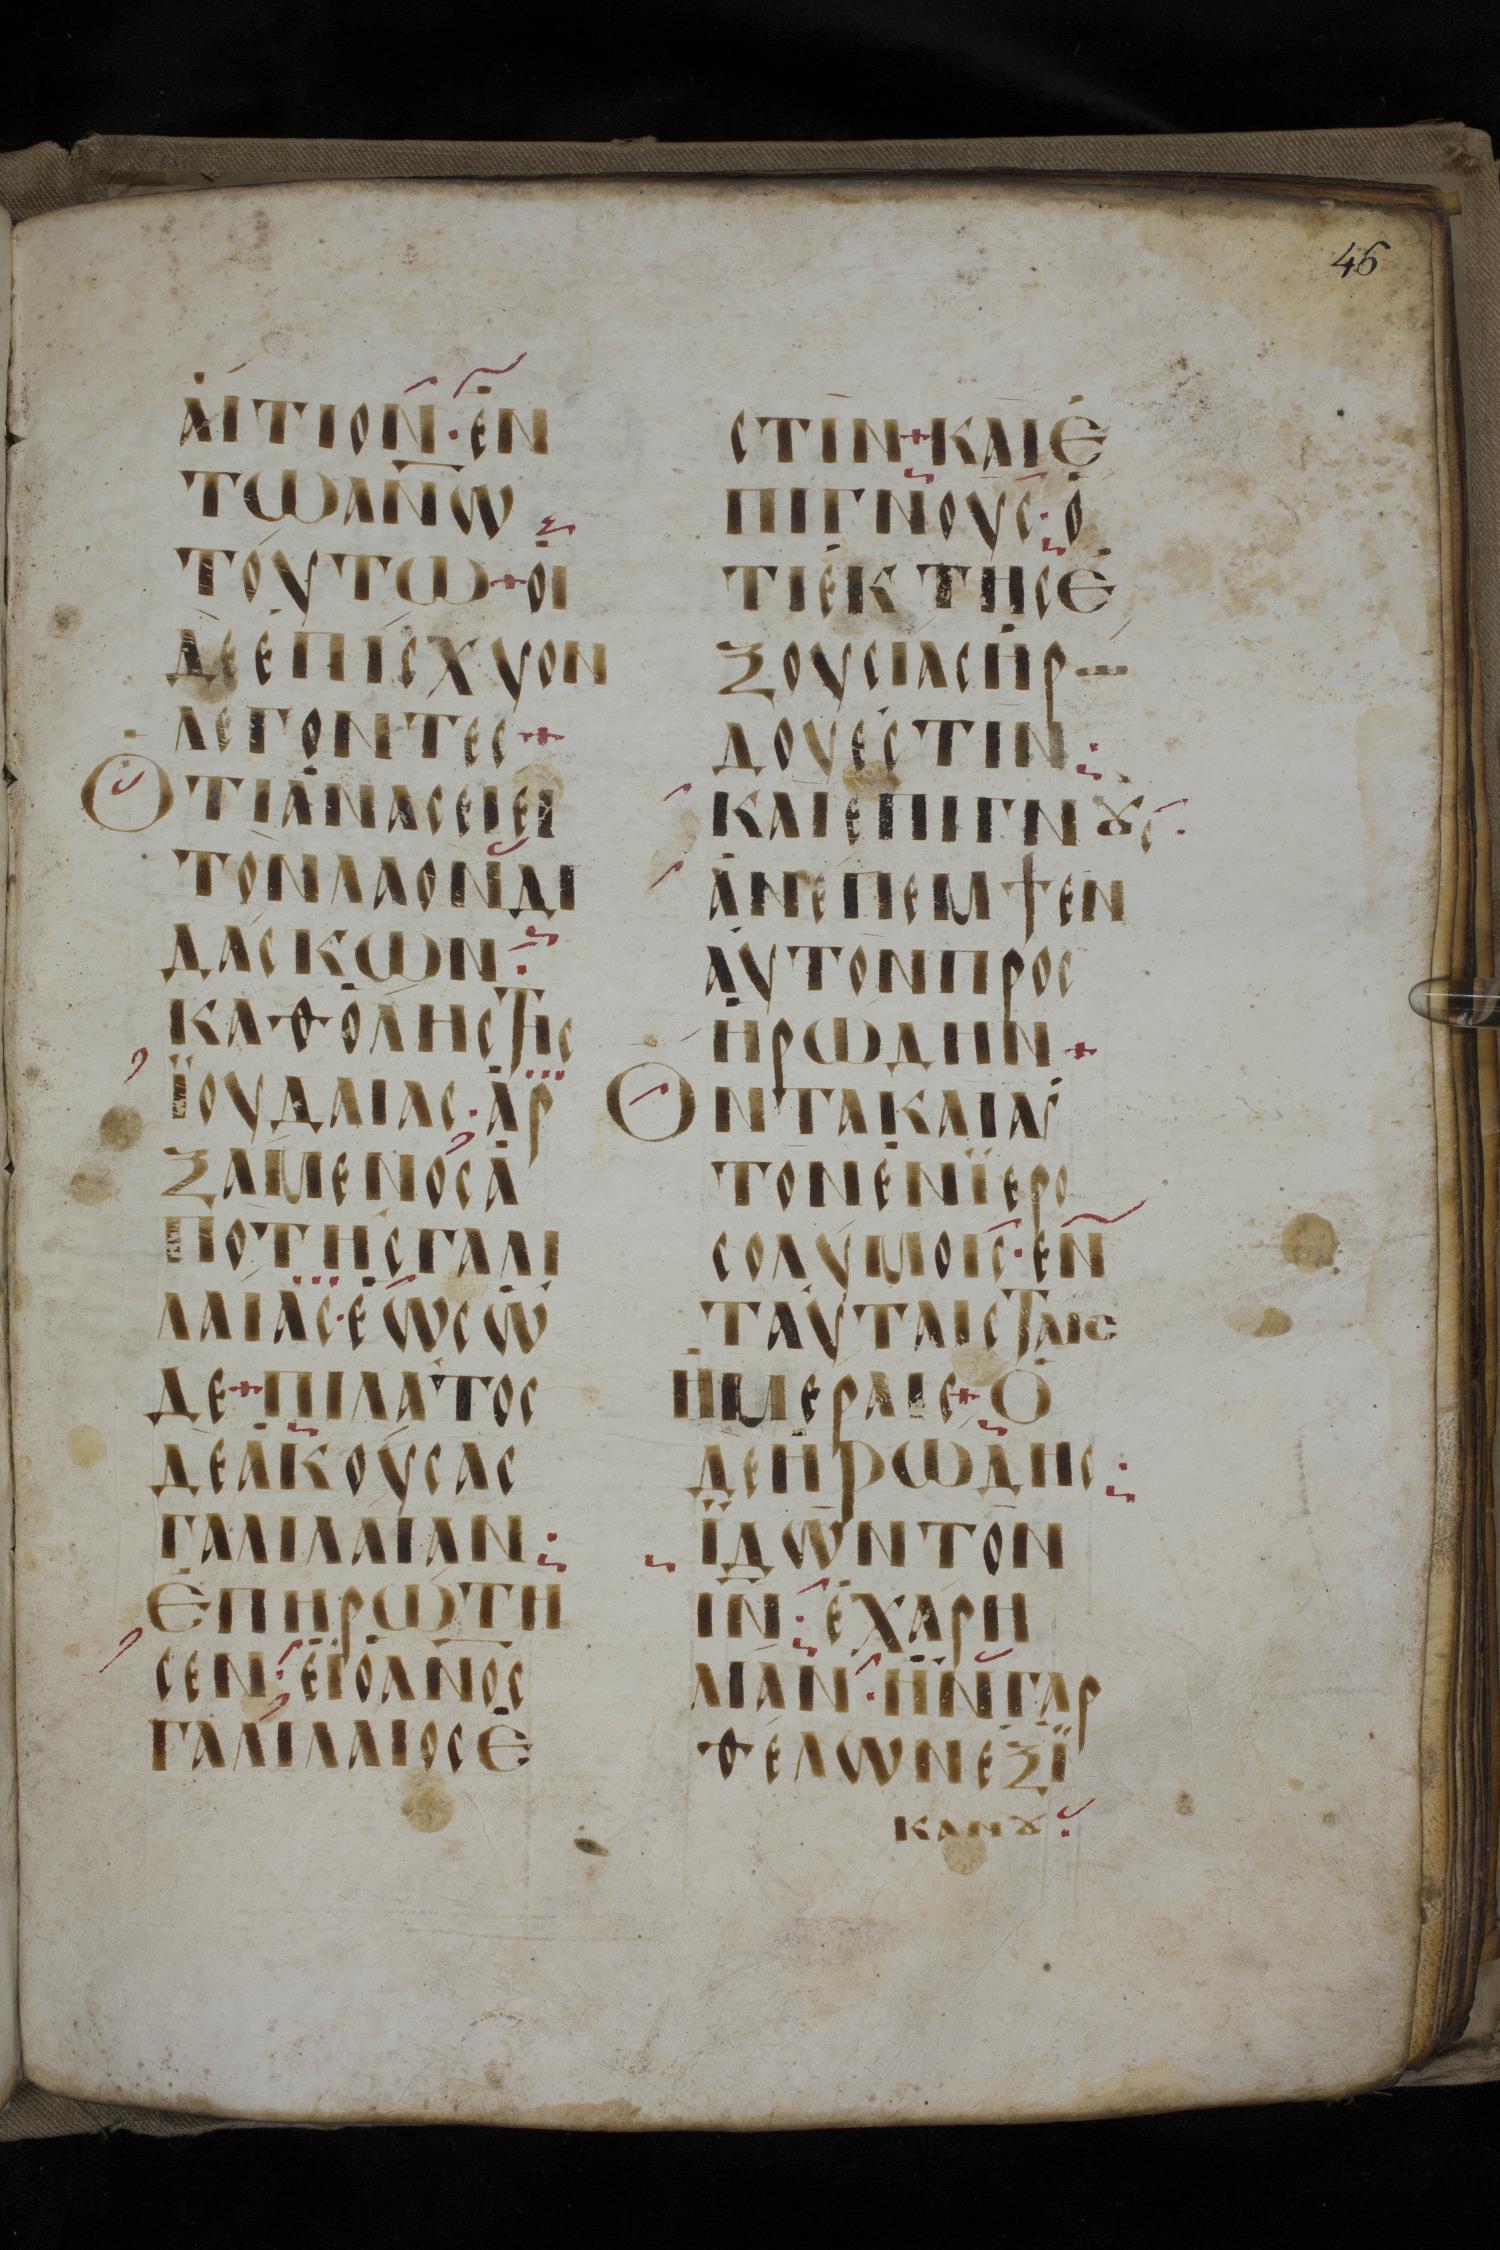 46
ΑΙΤΙΟΝ·ΕΝ
ΤΩΑΝ̅Ω̅
ΤΟΥΤΩ+ΟΙ
ΔΕΕΠΙСΧΥΟΝ
ΛΕΓΟΝΤΕС+
ΟΤΙΑΝΑСΕΙΕΙ
ΤΟΝΛΑΟΝΔΙ
ΔΑСΚΩΝ·
ΚΑΘΟΛΗСΤΗС
ΪΟΥΔΑΙΑС·ΑΡ
ΞΑΜΕΝΟСΑ
ΠΟΤΗСΓΑΛΙ
ΛΑΙΑС·ΕΩСΩ
ΔΕ+ΠΙΛΑΤΟС
ΔΕΑΚΟΥСΑС
ΓΑΛΙΛΑΙΑΝ:
ΕΠΗΡΩΤΗ
СΕΝ:ΕΪΟΑΝ̅Ο̅С̅
ΓΑΛΙΛΑΙΟСΕ
СΤΙΝ+ΚΑΙΕ
ΠΙΓΝΟΥС:Ο
ΤΙΕΚΤΗСΕ
ΞΟΥСΙΑСΗΡ
ΔΟΥΕСΤΙΝ:
ΚΑΙΕΠΙΓΝȣС·
ΑΝΕΠΕΜΨΕΝ
ΑΥΤΟΝΠΡΟС
ΗΡΩΔΗΝ+
ΟΝΤΑΚΑΙΑΥ
ΤΟΝΕΝΪΕΡΟ
СΟΛΥΜΟΙС·ΕΝ
ΤΑΥΤΑΙСΤΑΙС
ΗΜΕΡΑΙС+Ο
ΔΕΗΡΩΔΗС:
ΪΔΩΝΤΟΝ
Ι̅Ν̅:ΕΧΑΡΗ
ΛΙΑΝ·ΗΝΓΑΡ
ΘΕΛΩΝΕΞΪ
ΚΑΝȣ: